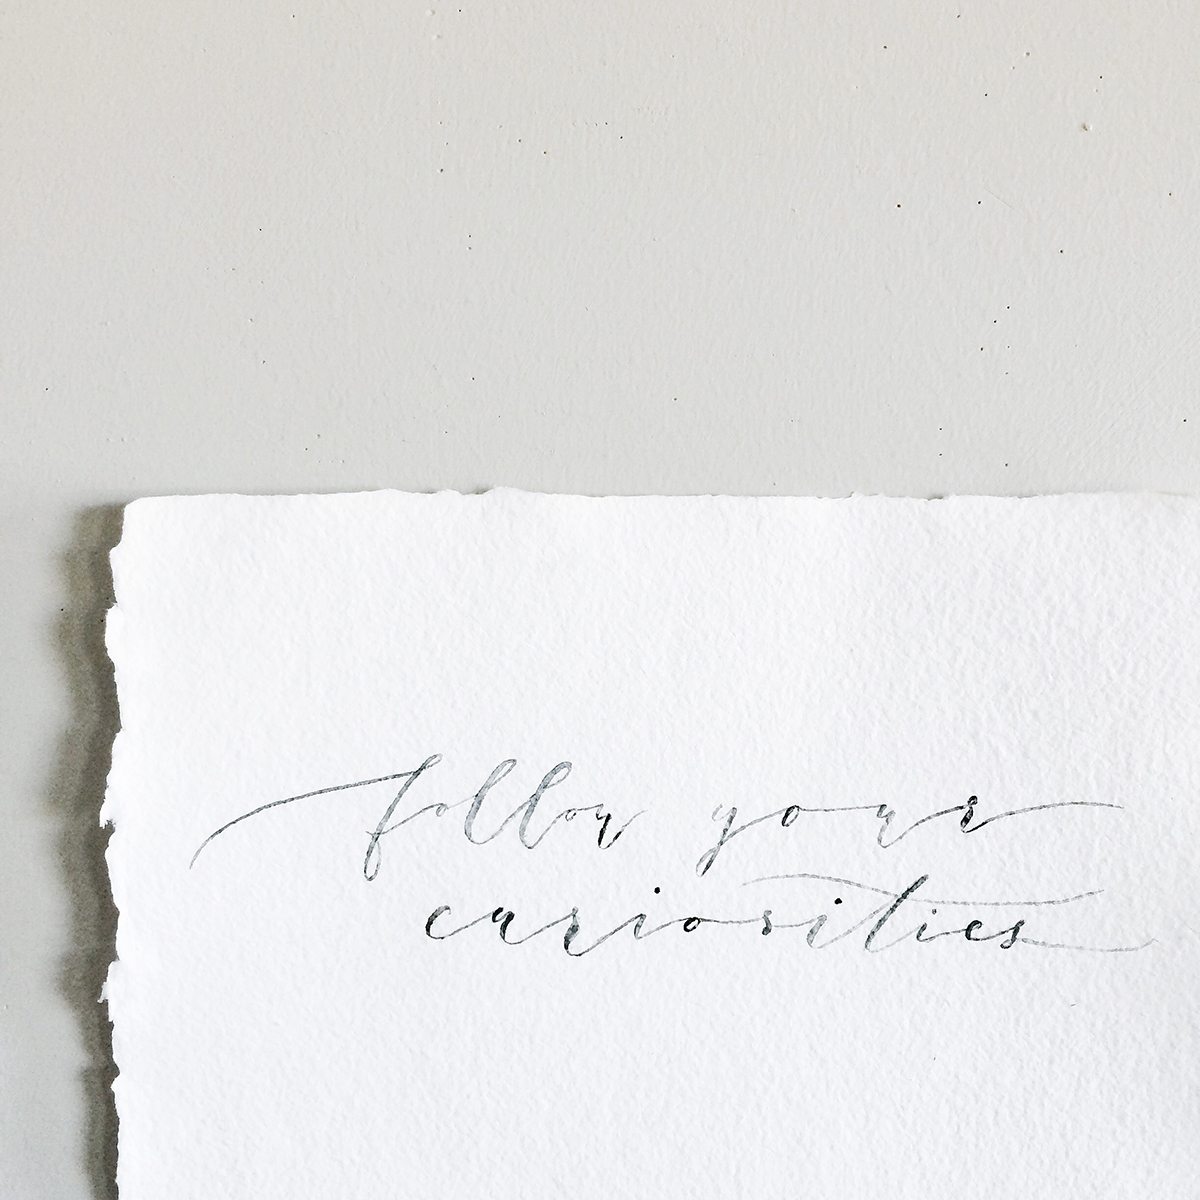 follow your
curiosities